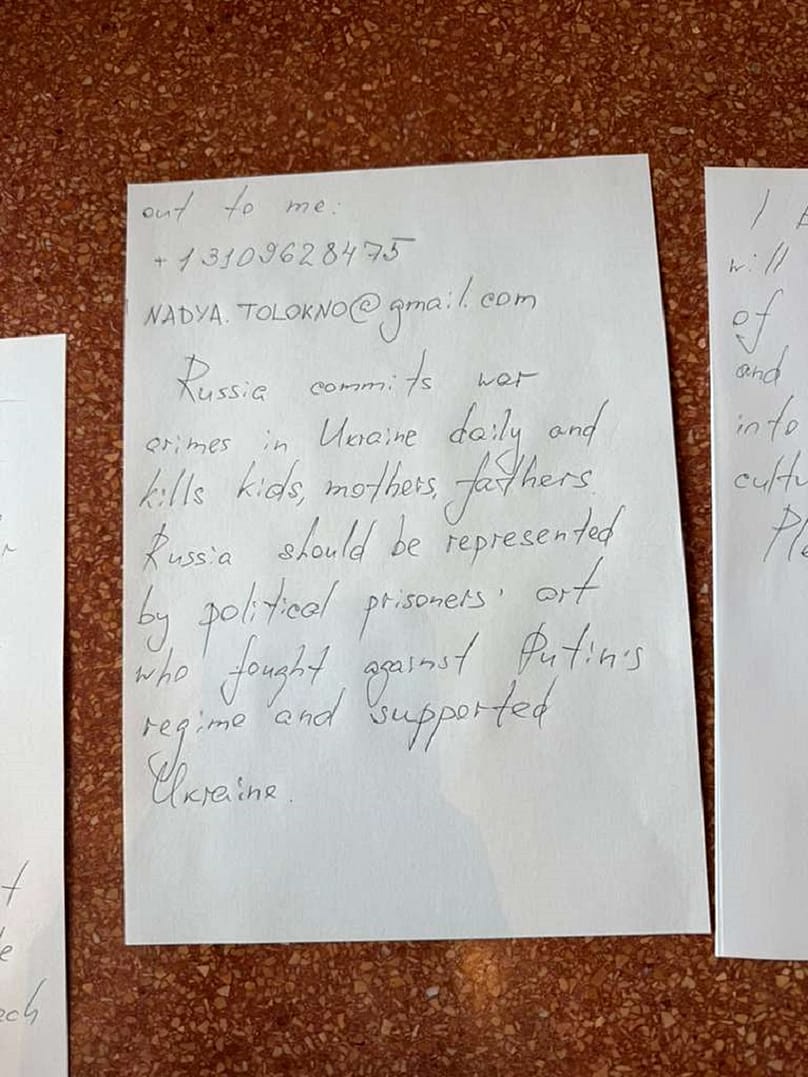 out to me:
+13109628475
NADYA.TOLOKNO@gmail.com
Russia commits war
crimes in Ukraine daily and
kills kids, mothers, fathers.
Russia should be represented
by political prisoners' art
who fought against Putin's
regime and supported
Ukraine.
t
ech
I
will
of
and
into
cultu
Ple